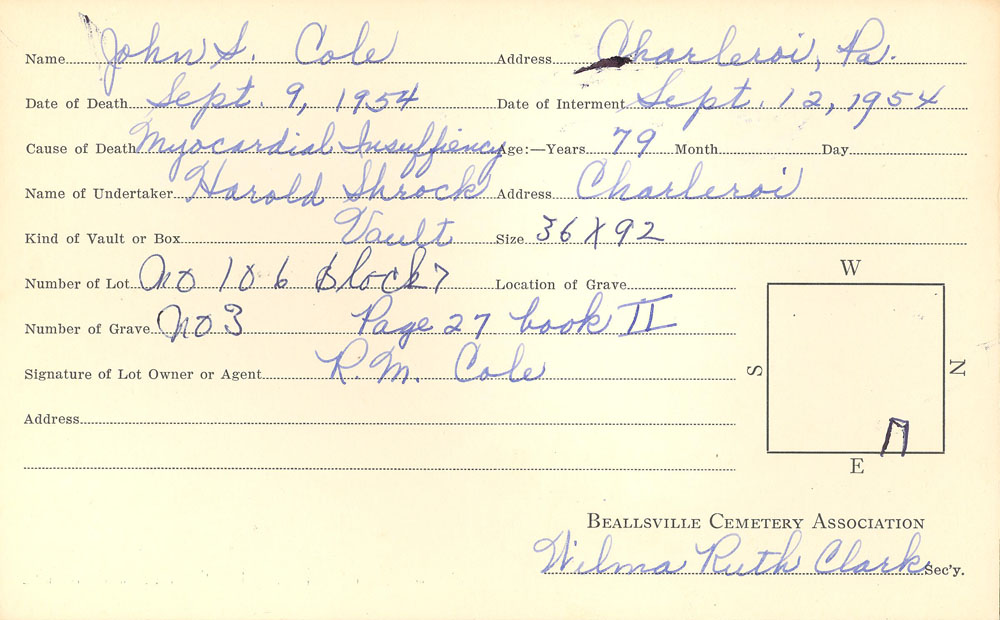 Name John S. Cole Address Charleroi, Pa.
Date of Death Sept. 9, 1954 Date of Interment Sept. 12, 1954
Cause of Death Myocardial Insuffiency Age:—Years 79 Month Day
Name of Undertaker Harold Shrock Address Charleroi
Kind of Vault or Box Vault Size 36 X 92
Number of Lot No 106 Block 7 Location of Grave
W
Number of Grave No 3 Page 27 book II
Signature of Lot Owner or Agent R. M. Cole
S N
Address
E
BEALLSVILLE CEMETERY ASSOCIATION
Wilma Ruth Clark Sec'y.